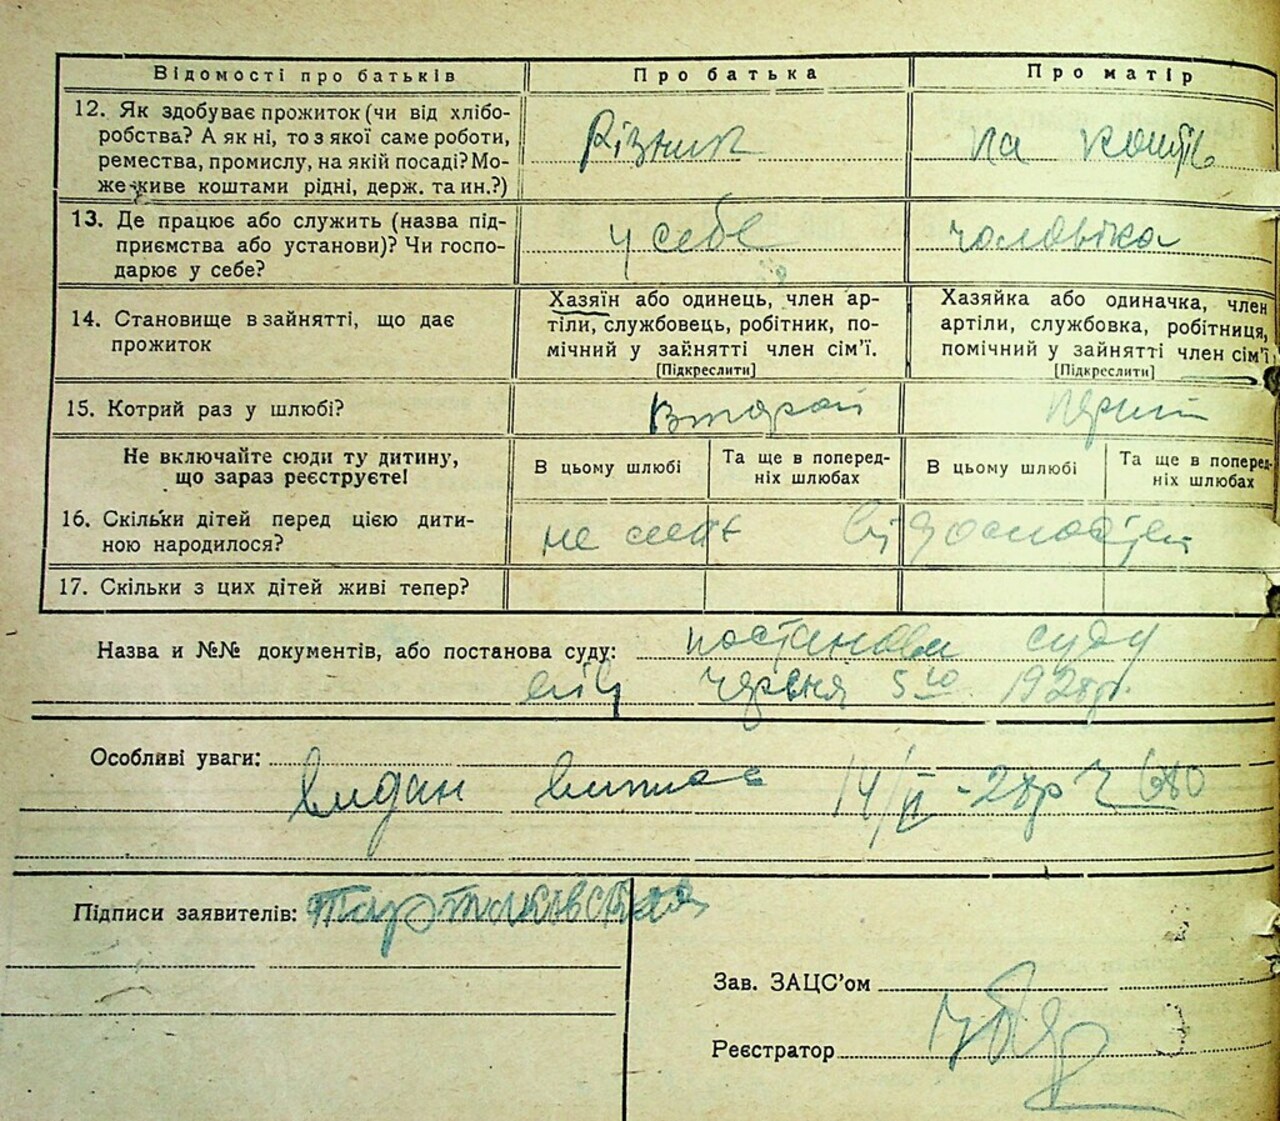 Відомості про батьків Про батька Про матір
12. Як здобуває прожиток (чи від хлібо-
робства? А як ні, то з якої саме роботи,
ремества, промислу, на якій посаді? Мо-
же живе коштами рідні, держ. та ин.?)
Різник на кошти
13. Де працює або служить (назва під-
приємства або установи)? Чи госпо-
дарює у себе?
у себе чоловіка
14. Становище в зайнятті, що дає
прожиток
Хазяїн або одинець, член ар-
тіли, службовець, робітник, по-
мічний у зайнятті член сім'ї.
[Підкреслити]
Хазяйка або одиначка, член
артіли, службовка, робітниця,
помічний у зайнятті член сім'ї
[Підкреслити]
15. Котрий раз у шлюбі?
второй
Не включайте сюди ту дитину,
що зараз реєструєте!
В цьому шлюбі
Та ще в поперед-
ніх шлюбах
В цьому шлюбі
Та ще в поперед-
ніх шлюбах
16. Скільки дітей перед цією дити-
ною народилося?
не
17. Скільки з цих дітей живі тепер?
Назва и №№ документів, або постанова суду: постанова суду
від червня 5го 1928р.
Особливі уваги:
видан 14/II-28р 680
Підписи заявителів:
Зав. ЗАЦС'ом
Реєстратор